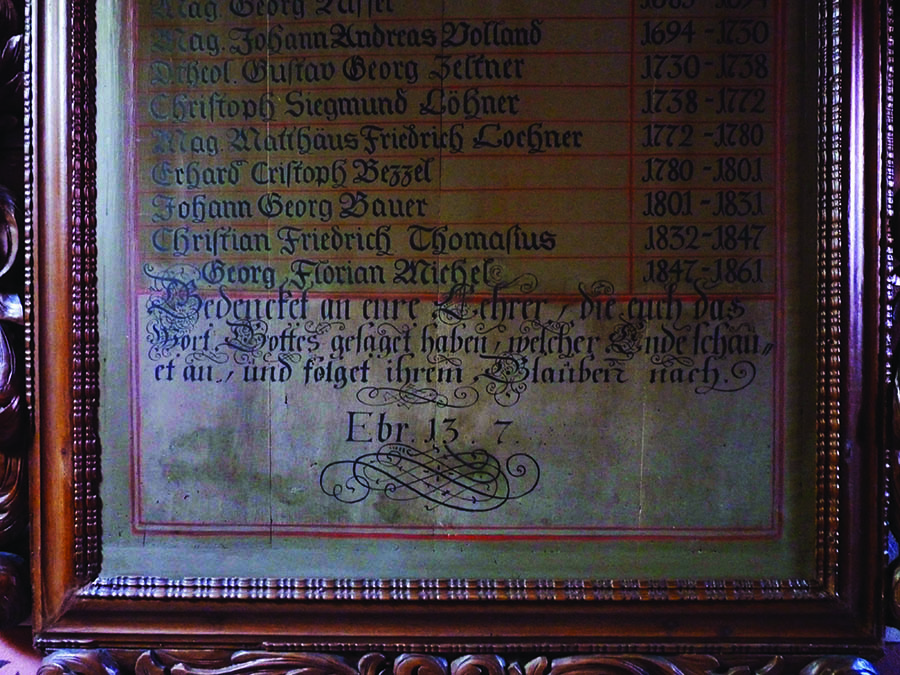 Mag Georg
Mag. Johann Andreas Volland 1694-1730
D theol. Gustav Georg Zeltner 1730-1738
Christoph Siegmund Löhner 1738-1772
Mag Matthäus Friedrich Lochner 1772-1780
Erhard Cristoph Bezzel 1780-1801
Johann Georg Bauer 1801-1831
Christian Friedrich Thomasius 1832-1847
Georg Florian Michel 1847-1861
Gedencket an eure Lehrer, die euch das
Wort Gottes gesaget haben, welcher Ende schau„
et an, und folget ihrem Glauben nach.
Ebr. 13. 7.